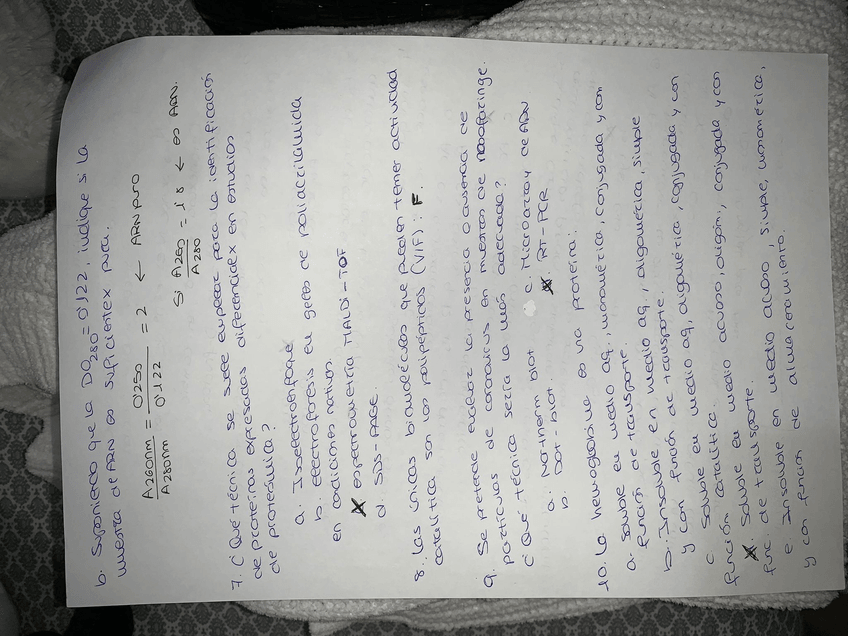 b. Suponiendo que la DO280 = 0'122, indique si la
muestra de ARN es suficientex pura.
A260nm / A280nm = 0'250 / 0'122 = 2 ← ARN puro
Si A260 / A280 = 1'8 ← es ADN.
7. ¿Qué técnica se suele emplear para la identificación
de proteínas expresadas diferencialx en estudios
de proteómica?
a. Isoelectroenfoque
b. electroforesis en geles de poliacrilamida
en condiciones nativas.
X espectrometría MALDI-TOF
d. SDS-PAGE
8. Las únicas biomoléculas que pueden tener actividad
catalítica son los polipéptidos (V/F): F.
9. Se pretende evaluar la presencia o ausencia de
partículas de coronavirus en muestras de nasofaringe.
¿Qué técnica sería la más adecuada?
a. Northern blot c. Microarray de ADN
b. Dot-blot. X. RT-PCR
10. La hemoglobina es una proteína:
a. Soluble en medio aq., monomérica, conjugada y con
función de transporte.
b. Insoluble en medio aq., oligomérica, simple
y con función de transporte.
c. Soluble en medio aq, oligomérica, conjugada y con
función catalítica.
X. Soluble en medio acuoso, oligóm., conjugada y con
func. de transporte.
e. Insoluble en medio acuoso, simple, monomérica,
y con función de almacenamiento.